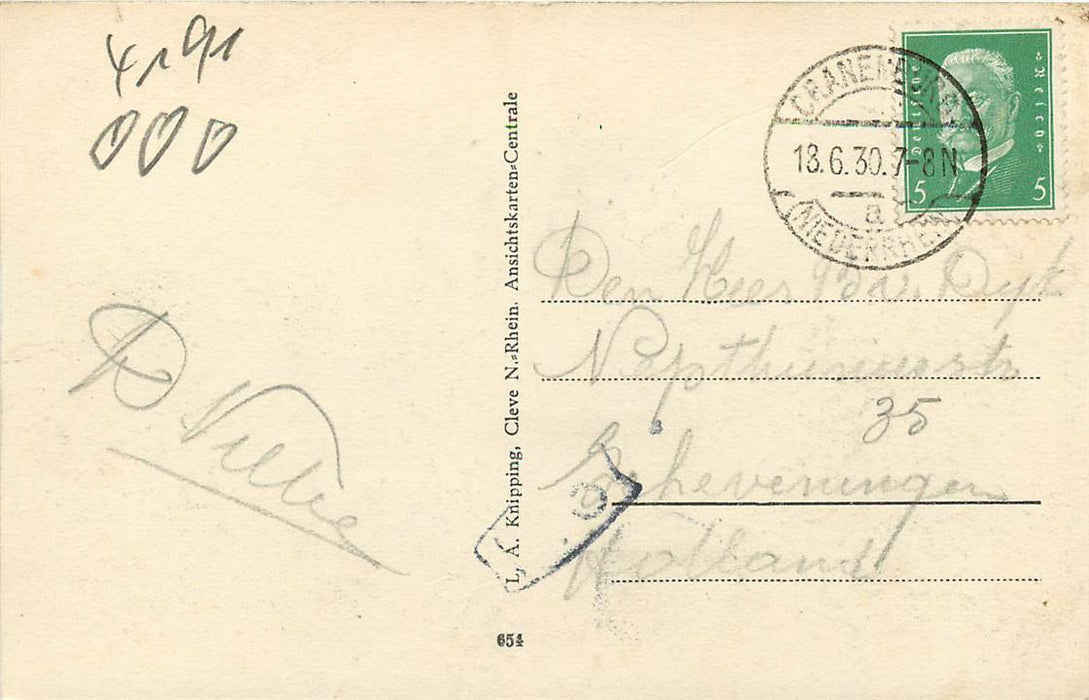 4191
000
CRANENBURG
18.6.30.7-8N
a
(NIEDERRHEIN)
Deutsches Reich
5 5
L. A. Knipping, Cleve N.-Rhein. Ansichtskarten-Centrale
Den Heer B. v. Dyk
Nepthunusstr
35
Scheveningen
Holland
654